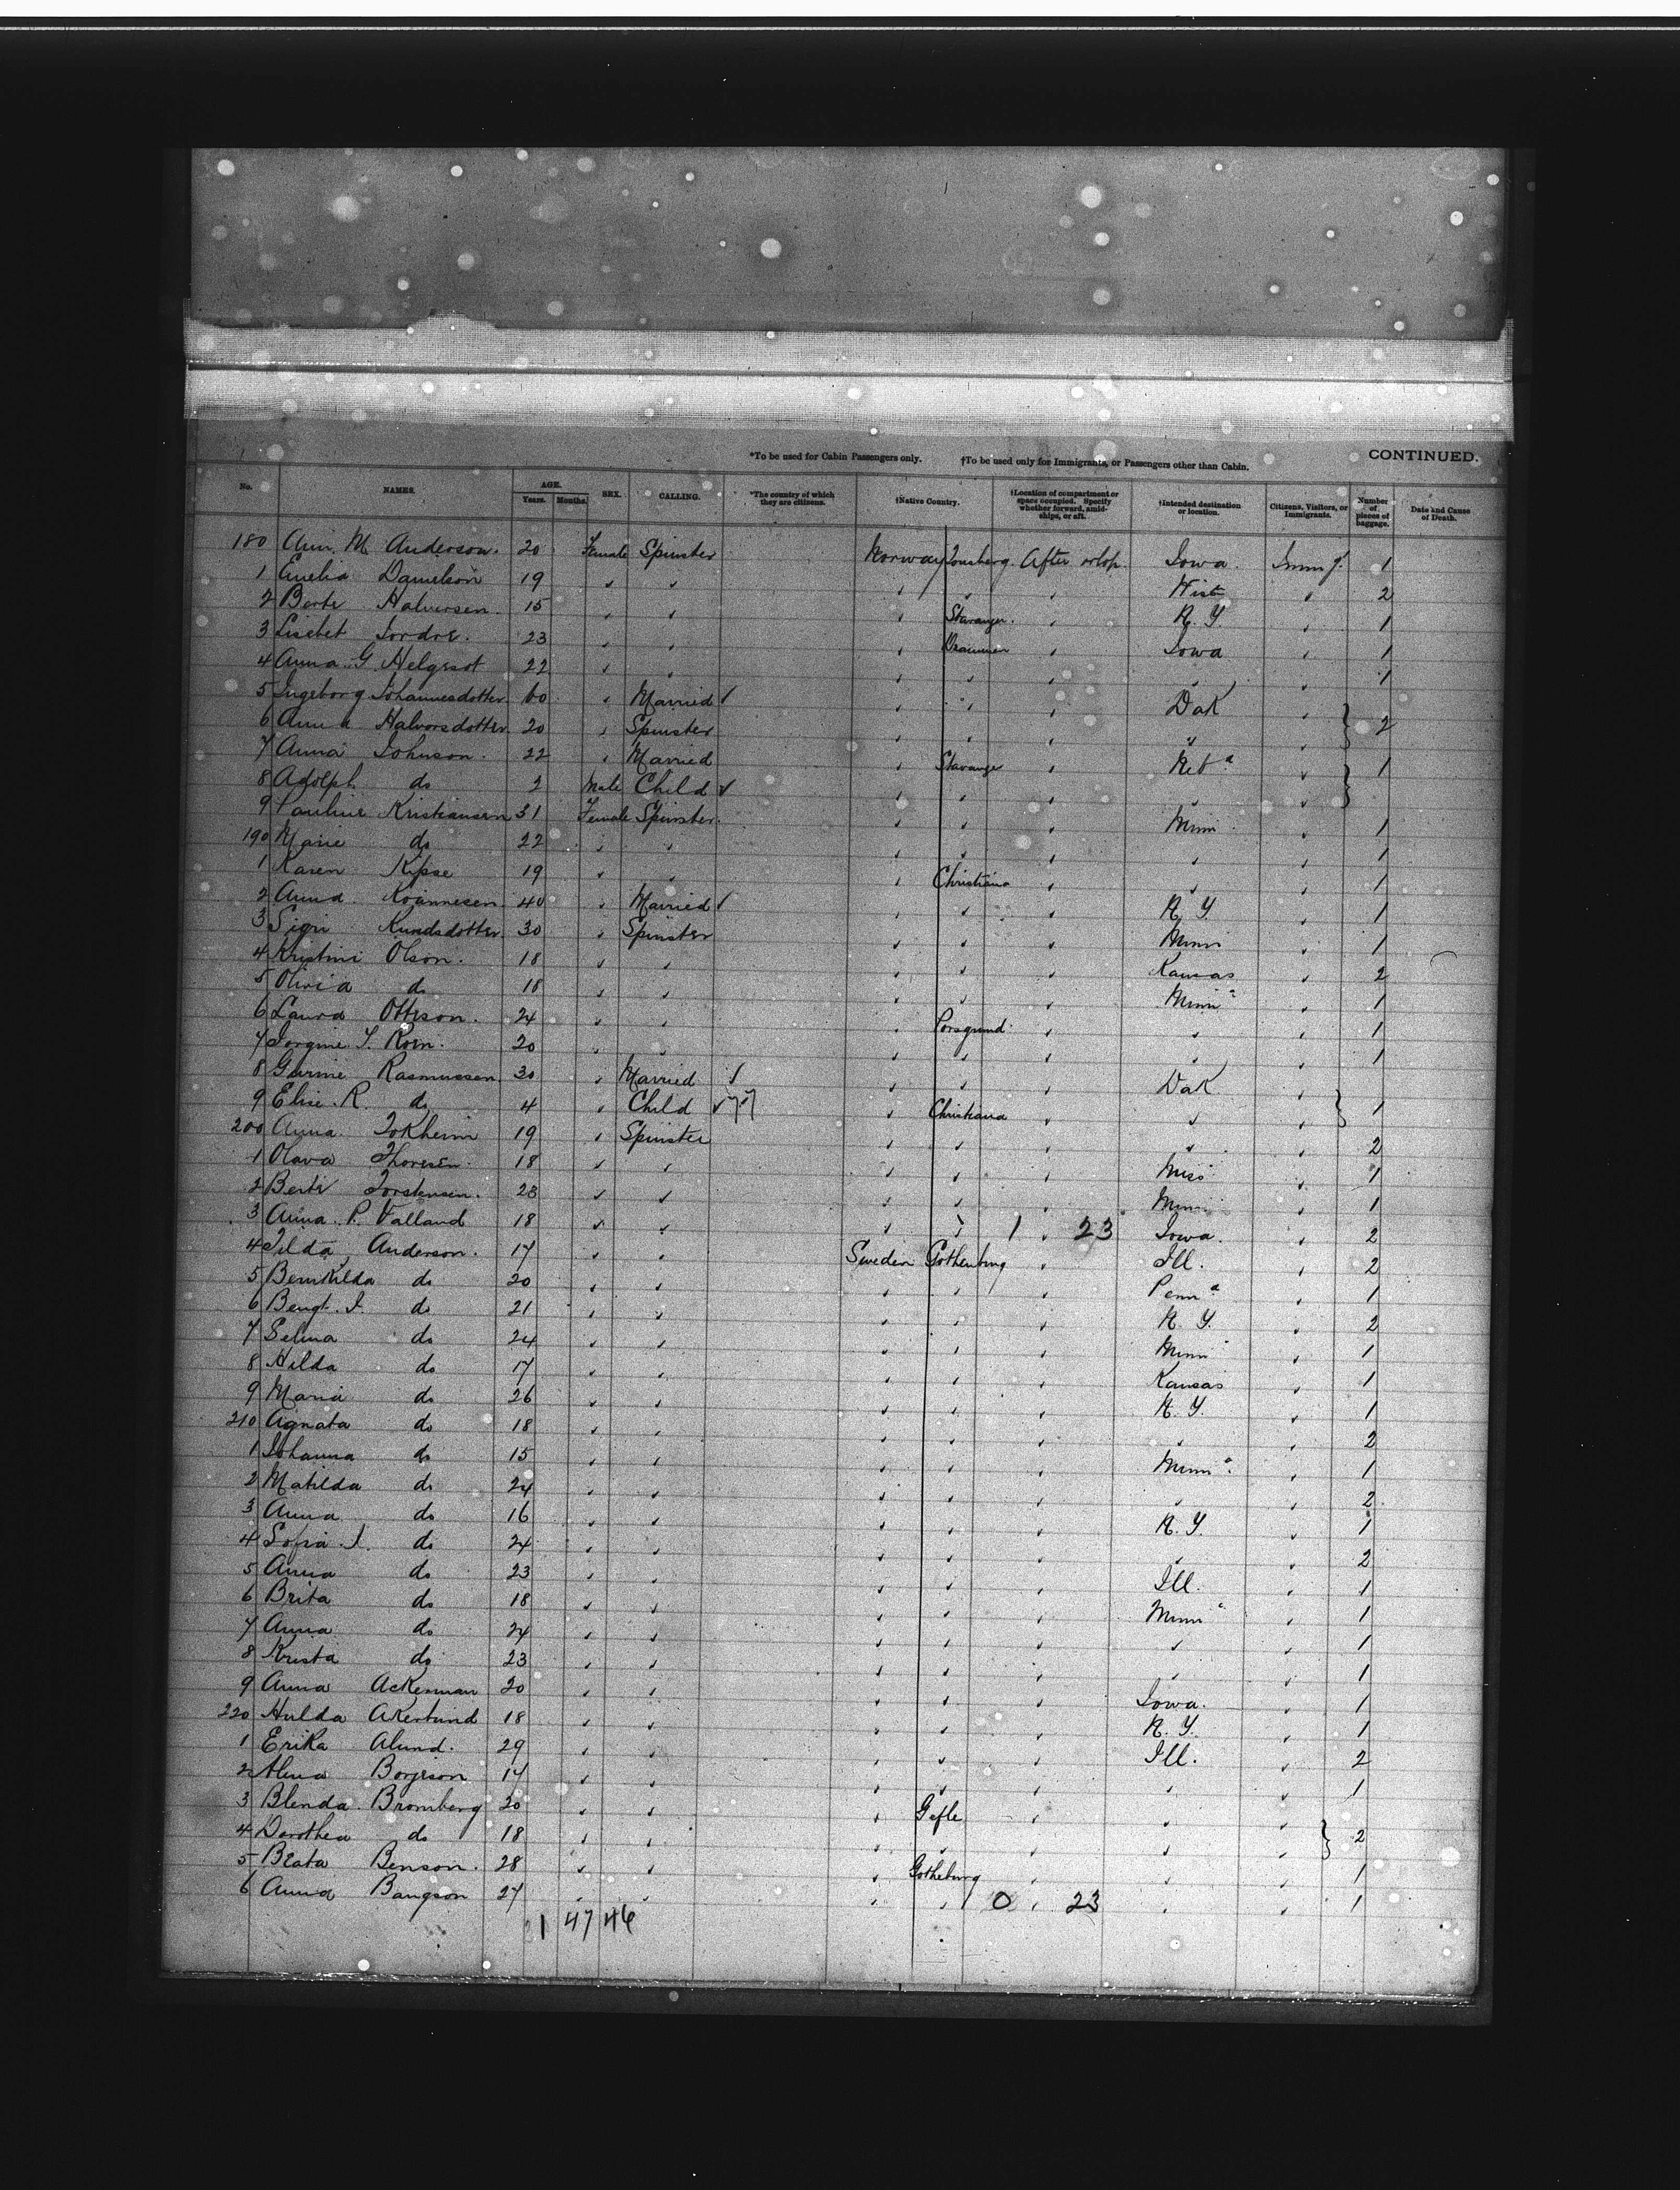 *To be used for Cabin Passengers only. †To be used only for Immigrants, or Passengers other than Cabin. CONTINUED.
No. NAMES. AGE. Years. Months. SEX. CALLING. *The country of which they are citizens. †Native Country. †Location of compartment or space occupied. Specify whether forward, amidships, or aft. †Intended destination or location. Citizens, Visitors, or Immigrants. Number of pieces of baggage. Date and Cause of Death.
180 Ann. M Anderson. 20 Female Spinster Norway Tonsberg. After orlop. Iowa. Immg. 1
1 Emelia Danielson 19 " " " " " Wist " 2
2 Berte Halversen. 15 " " " Stavanger. " N. Y. " 1
3 Lisebet Tordre. 23 " " " Drammen " Iowa " 1
4 Anna G Helgesot 22 " " " " " " " 1
5 Ingeborg Johannesdotter. 60 " Married " " " Dak "
6 Anna Halvorsdotter 20 " Spinster " " " " " 2
7 Anna Johnson. 22 " Married " Stavanger " Neba " 1
8 Adolph do 2 Male Child " " " " "
9 Pauline Kristiansen 31 Female Spinster. " " " Minn " 1
190 Marie do 22 " " " " " " " 1
1 Karen Kipse 19 " " " Christiana " " " 1
2 Anna Koannesen 40 " Married " " " N. Y. " 1
3 Sigri Kundsdotter 30 " Spinster " " " Minn " 1
4 Kristini Olson. 18 " " " " " Kansas " 2
5 Olivia do 18 " " " " " Minna " 1
6 Laura Otteson. 24 " " " Porsgrund. " " " 1
7 Jorgine T. Roen. 20 " " " " " " " 1
8 Gurine Rasmussen 30 " Married " " " Dak "
9 Elise. R. do 4 " Child " Christiana " " " 1
200 Anna Tokheim 19 " Spinster " " " " " 2
1 Olava Thoresen. 18 " " " " " Miss " 1
2 Berte Torstensen. 23 " " " " " Minn " 1
3 Anna. P. Valland 18 " " " " 1 " 23 Iowa. " 2
4 Tilda Anderson. 17 " " Sweden Gothenburg " Ill. " 2
5 Bernhilda do 20 " " " " " Penna " 1
6 Bengt. I. do 21 " " " " " N. Y. " 2
7 Selma do 24 " " " " " Minn " 1
8 Hilda do 17 " " " " " Kansas " 1
9 Maria do 26 " " " " " N. Y. " 1
210 Agnata do 18 " " " " " " " 2
1 Johanna do 15 " " " " " Minna. " 1
2 Matilda do 24 " " " " " " " 2
3 Anna do 16 " " " " " N. Y. " 1
4 Sofia I. do 24 " " " " " " " 2
5 Anna do 23 " " " " " Ill. " 1
6 Brita do 18 " " " " " Minna " 1
7 Anna do 24 " " " " " " " 1
8 Krista do 23 " " " " " " " 1
9 Anna Ackerman 20 " " " " " Iowa. " 1
220 Hulda Akerlund 18 " " " " " N. Y. " 1
1 Erika Alund. 29 " " " " " Ill. " 2
2 Alma Borjeson 14 " " " " " " " 1
3 Blenda. Bromberg 20 " " " Gefle " " "
4 Dorothea do 18 " " " " " " " 2
5 Beata Benson. 28 " " " Gotheburg " " " 1
6 Anna Bangson 27 " " " " 0 " 23 " " 1
1 47 46